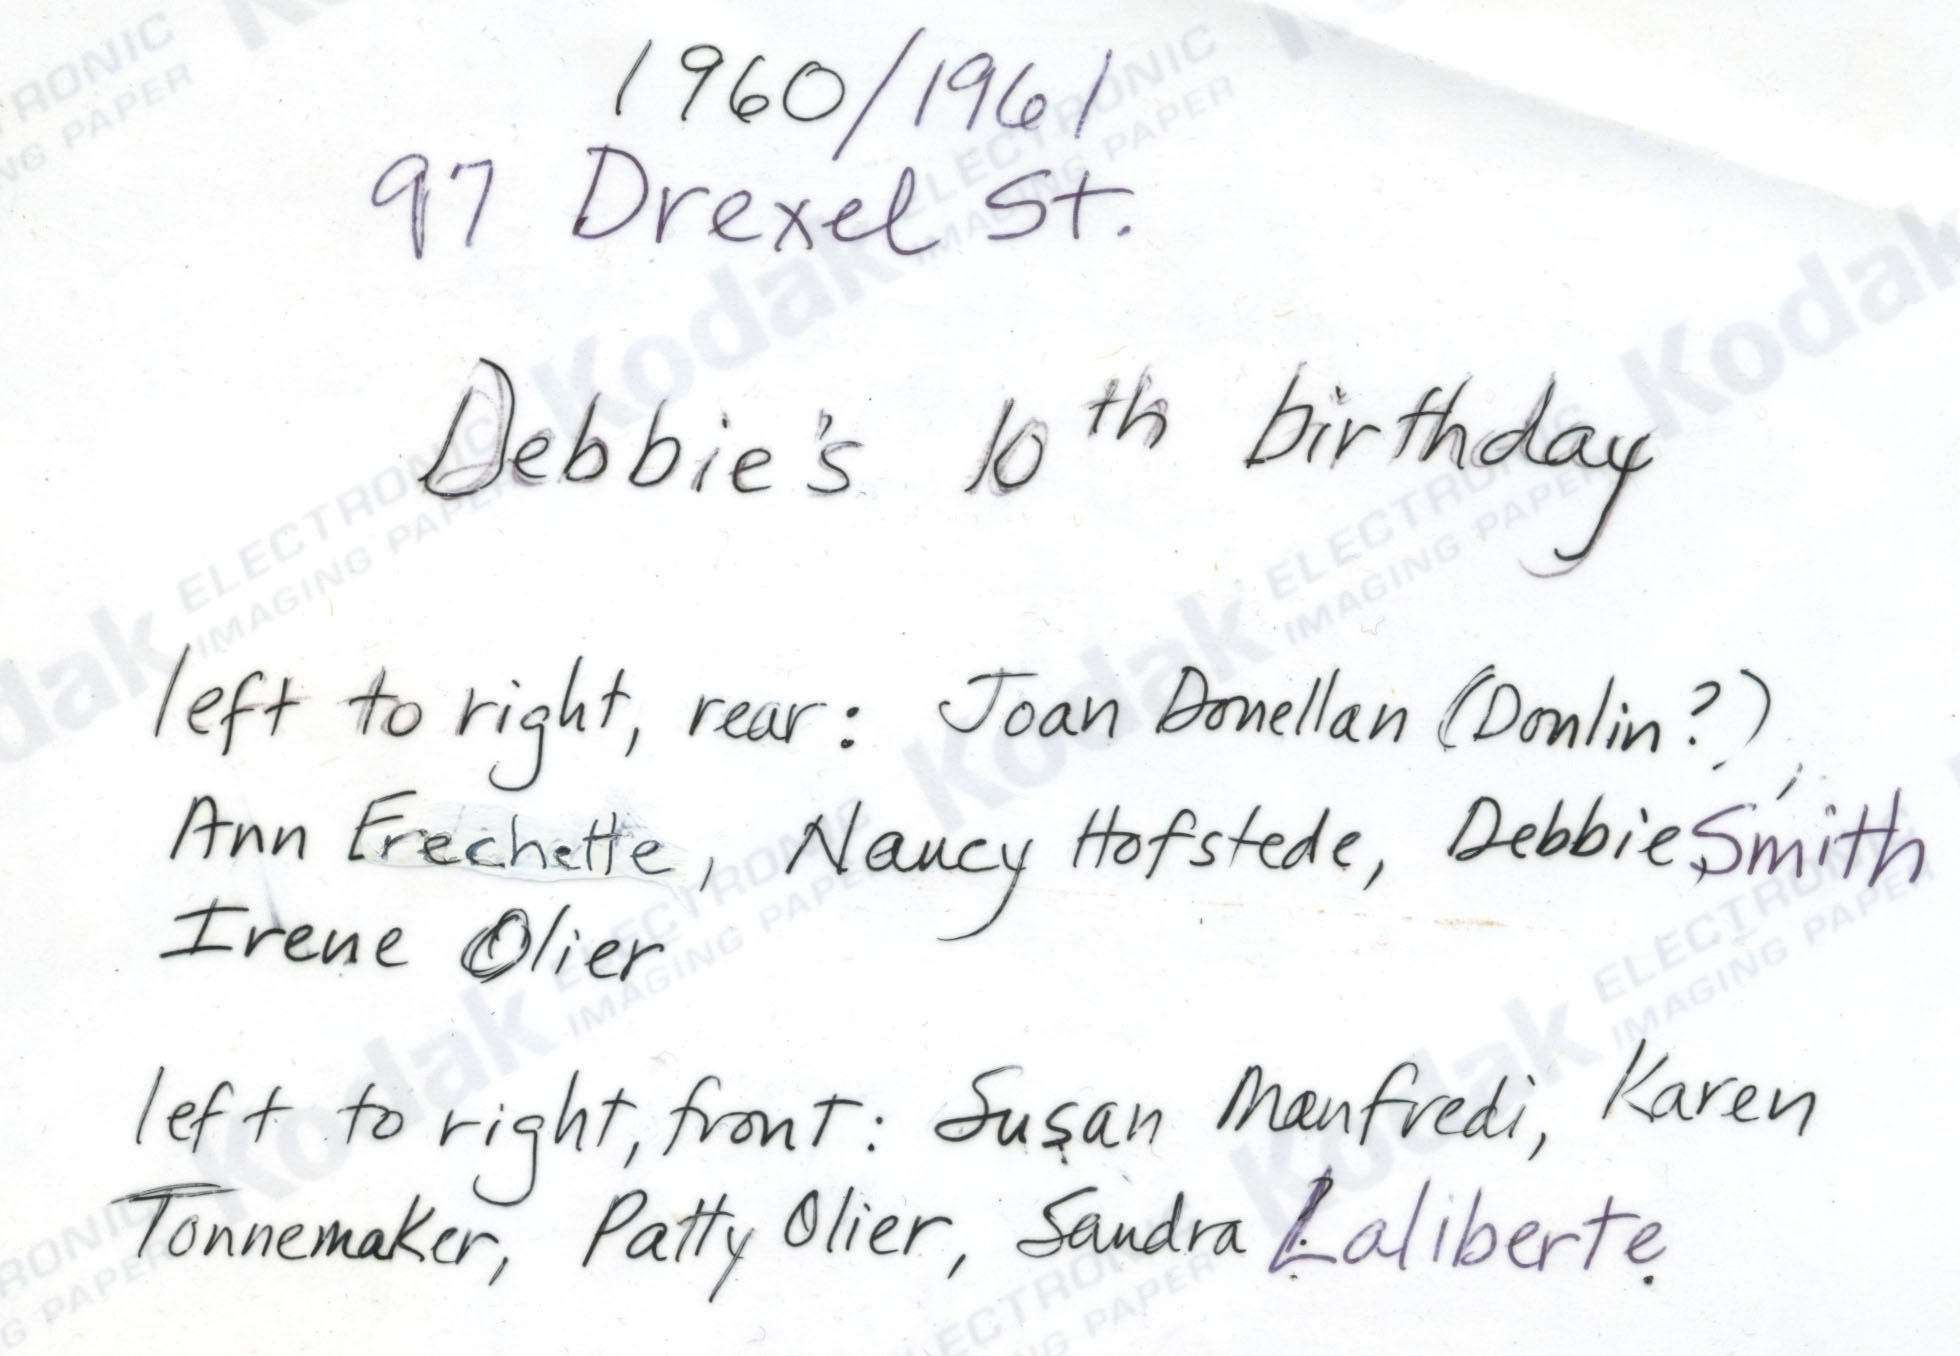 1960/1961
97 Drexel St.
Debbie's 10th birthday
left to right, rear: Joan Donellan (Donlin?),
Ann Frechette, Nancy Hofstede, Debbie Smith
Irene Olier
left to right, front: Susan Manfredi, Karen
Tonnemaker, Patty Olier, Sandra Laliberte.
Kodak ELECTRONIC
IMAGING PAPER